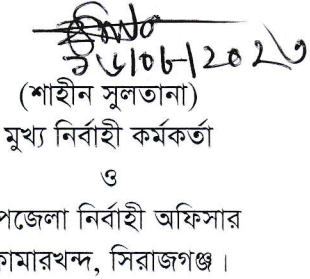 (শাহীন সুলতানা)
মুখ্য নির্বাহী কর্মকর্তা
ও
পজেলা নির্বাহী অফিসার
কামারখন্দ, সিরাজগঞ্জ।